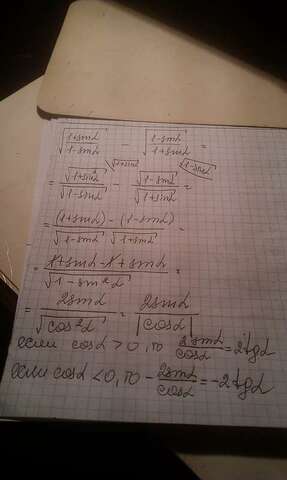 √((1+sinα)/(1-sinα)) - √((1-sinα)/(1+sinα)) =
= √(1+sinα)/√(1-sinα) ^(√(1+sinα)) - √(1-sinα)/√(1+sinα) ^(√(1-sinα)) =
= ((1+sinα)-(1-sinα))/(√(1-sinα) √(1+sinα)) =
= (1+sinα-1+sinα)/√(1-sin²α) =
= 2sinα/√(cos²α) = 2sinα/|cosα|
если cosα > 0, то 2sinα/cosα = 2tgα
если cosα < 0, то -2sinα/cosα = -2tgα